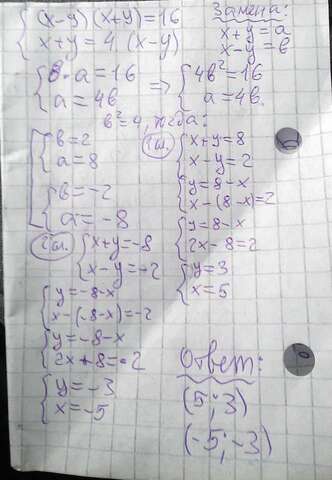 {(x-y)(x+y)=16
{x+y=4(x-y)
Замена:
x+y=a
x-y=в
{в·a=16
{a=4в
=> {4в²=16
{a=4в
в²=4, тогда:
[{в=2
{a=8
{в=-2
{a=-8
{x+y=8
{x-y=2
{y=8-x
{x-(8-x)=2
{y=8-x
{2x-8=2
{y=3
{x=5
{x+y=-8
{x-y=-2
{y=-8-x
{x-(-8-x)=-2
{y=-8-x
{2x+8=-2
{y=-3
{x=-5
Ответ:
(5;3)
(-5;-3)